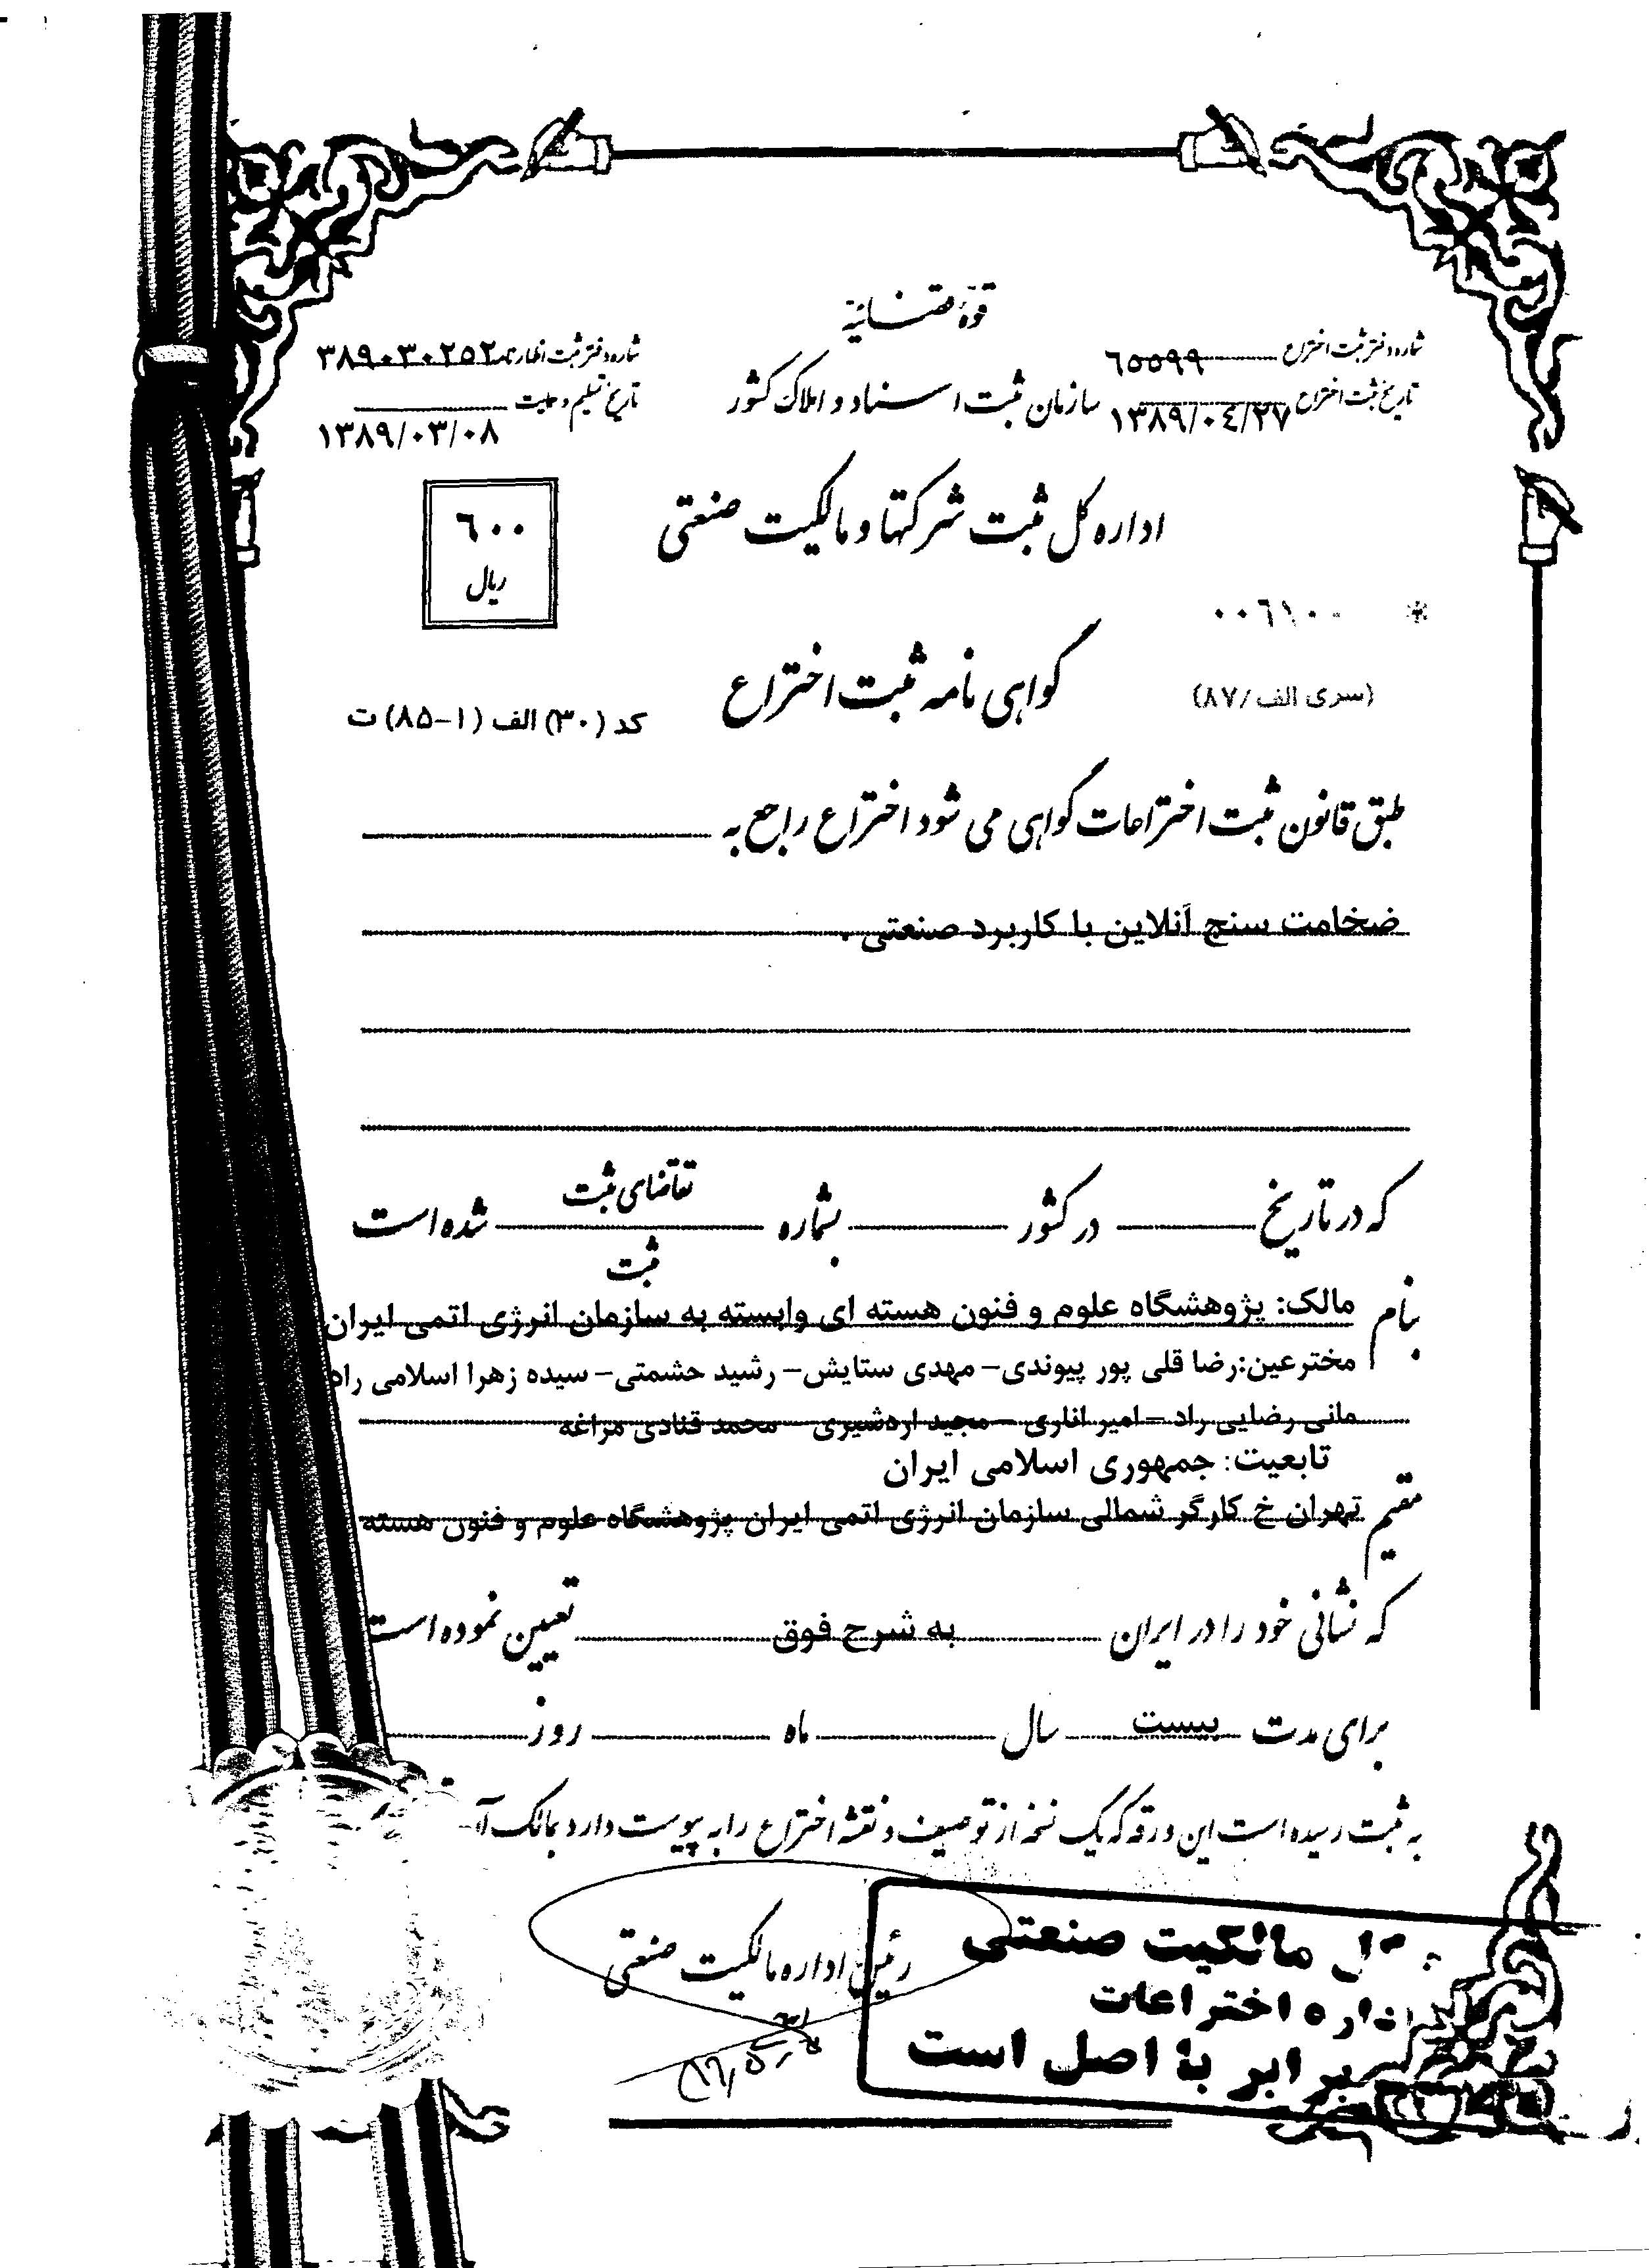 قوهٔ قضائیه
شماره دفتر ثبت اختراع ٦٥٥٩٩
شماره دفتر ثبت اظهارنامه ٣٨٩٠٣٠٢٥٢
سازمان ثبت اسناد و املاک کشور
تاریخ ثبت اختراع ١٣٨٩/٠٤/٢٧
تاریخ تسلیم و حمایت ١٣٨٩/٠٣/٠٨
اداره کل ثبت شرکتها و مالکیت صنعتی
٦٠٠
ریال
٠٠٦١٠٠ *
گواهی نامه ثبت اختراع
(سری الف/٨٧)
کد (٣٠) الف (١-٨٥) ت
طبق قانون ثبت اختراعات گواهی می شود اختراع راجع به
ضخامت سنج آنلاین با کاربرد صنعتی .
که در تاریخ در کشور بشماره تقاضای ثبت شده است
ثبت
بنام مالک: پژوهشگاه علوم و فنون هسته ای وابسته به سازمان انرژی اتمی ایران
مخترعین:رضا قلی پور پیوندی- مهدی ستایش- رشید حشمتی- سیده زهرا اسلامی راد
مانی رضایی راد - امیر اناری - مجید اردشیری - محمد قنادی مراغه
تابعیت: جمهوری اسلامی ایران
مقیم تهران خ کارگر شمالی سازمان انرژی اتمی ایران پژوهشگاه علوم و فنون هسته
که نشانی خود را در ایران به شرح فوق تعیین نموده است
برای مدت بیست سال ماه روز
به ثبت رسیده است این ورقه که یک نسخه از توصیف و نقشه اختراع را به پیوست دارد بمالک آ
رئیس اداره مالکیت صنعتی
مالکیت صنعتی
اداره اختراعات
برابر با اصل است